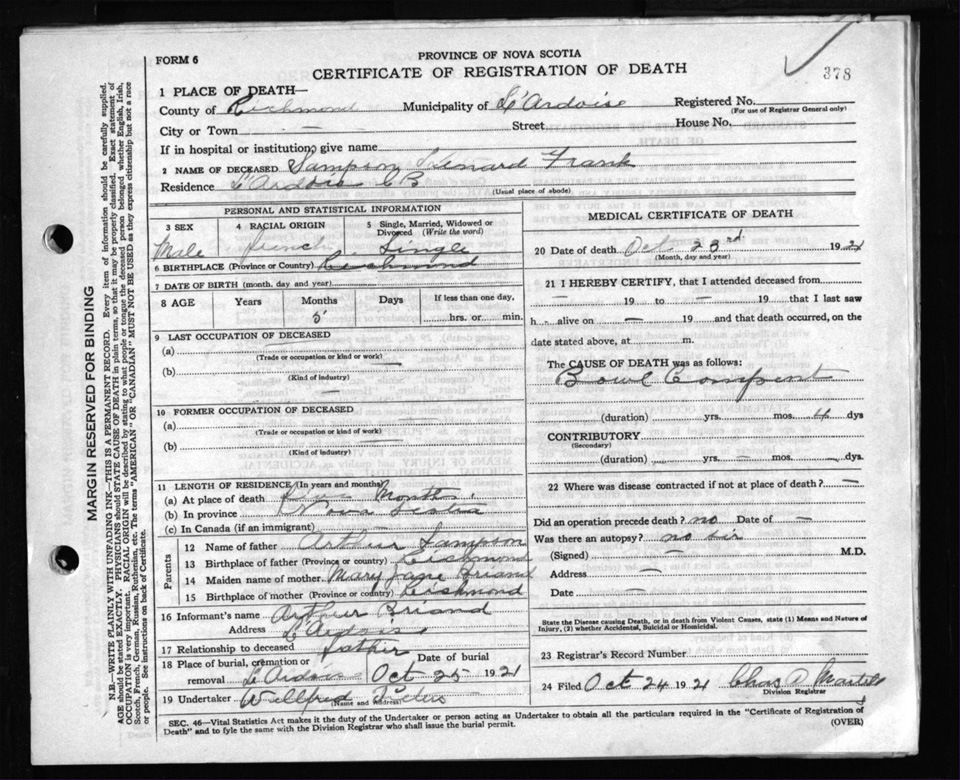 378
FORM 6
PROVINCE OF NOVA SCOTIA
CERTIFICATE OF REGISTRATION OF DEATH
1 PLACE OF DEATH—
County of Richmond Municipality of L'Ardoise Registered No.
(For use of Registrar General only)
City or Town — Street House No.
If in hospital or institution, give name
2 NAME OF DECEASED Sampson Lenard Frank
Residence L'Ardoise C B
(Usual place of abode)
PERSONAL AND STATISTICAL INFORMATION
3 SEX
Male
4 RACIAL ORIGIN
french
5 Single, Married, Widowed or Divorced (Write the word)
Single
6 BIRTHPLACE (Province or Country) Richmond
7 DATE OF BIRTH (month, day and year)
8 AGE Years Months Days If less than one day,
5 hrs. or min.
9 LAST OCCUPATION OF DECEASED
(a) —
(Trade or occupation or kind or work)
(b) —
(Kind of industry)
10 FORMER OCCUPATION OF DECEASED
(a)
(Trade or occupation or kind of work)
(b) —
(Kind of industry)
11 LENGTH OF RESIDENCE (In years and months)
(a) At place of death Months
(b) In province Nova Scotia
(c) In Canada (if an immigrant) —
Parents
12 Name of father Arthur Sampson
13 Birthplace of father (Province or country) Richmond
14 Maiden name of mother Mary Jane Briand
15 Birthplace of mother (Province or country) Richmond
16 Informant's name Arthur Briand
Address L'Ardoise
17 Relationship to deceased father
18 Place of burial, cremation or removal L'Ardoise
Date of burial Oct 25 1921
19 Undertaker Willfred
(Name and Address)
MEDICAL CERTIFICATE OF DEATH
20 Date of death Oct 23rd 1921
(Month, day and year)
21 I HEREBY CERTIFY, that I attended deceased from
— 19 to — 19 that I last saw
h alive on — 19 and that death occurred, on the
date stated above, at m.
The CAUSE OF DEATH was as follows:
Bowl Compent
(duration) yrs. mos. 4 dys
CONTRIBUTORY
(Secondary)
(duration) yrs. mos. dys.
22 Where was disease contracted if not at place of death? —
Did an operation precede death? no Date of —
Was there an autopsy? no sir
(Signed) — M.D.
Address —
Date —
State the Disease causing Death, or in death from Violent Causes, state (1) Means and Nature of
Injury, (2) whether Accidental, Suicidal or Homicidal.
23 Registrar's Record Number
24 Filed Oct 24 1921 Chas D Martell
Division Registrar
SEC. 46—Vital Statistics Act makes it the duty of the Undertaker or person acting as Undertaker to obtain all the particulars required in the "Certificate of Registration of
Death" and to fyle the same with the Division Registrar who shall issue the burial permit.
(OVER)
MARGIN RESERVED FOR BINDING
N.B.—WRITE PLAINLY WITH UNFADING INK—THIS IS A PERMANENT RECORD. Every item of information should be carefully supplied.
AGE should be stated EXACTLY. PHYSICIANS should STATE CAUSE OF DEATH in plain terms, so that it may be properly classified. Exact statement of
OCCUPATION is very important. RACIAL ORIGIN will be described by stating to what people or tongue the deceased person belonged whether English, Irish,
Scotch, French, German, Russian, Ruthenian, etc. The terms "AMERICAN" OR "CANADIAN" MUST NOT BE USED as they express citizenship but not a race
or people. See instructions on back of Certificate.